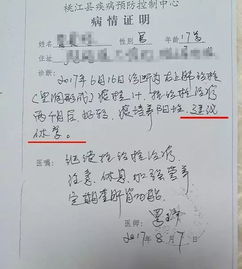 桃江县疾病预防控制中心
病情证明
姓名 性别 男 年龄 17岁
诊断
2017年6月16日诊断为右上肺结核
(空洞形成)痰检1+ 抗结核治疗
两个月后好转,痰培养阳性,建议
休学。
医嘱:
继续抗结核治疗
注意休息 加强营养
定期查肝肾功能
2017年8月7日